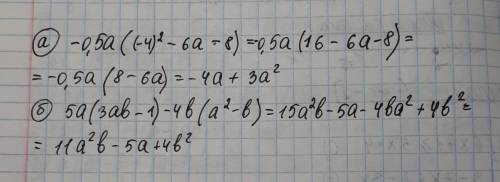 а) -0,5a((-4)² - 6a - 8) = 0,5a(16 - 6a - 8) =
= -0,5a(8 - 6a) = -4a + 3a²
б) 5a(3ab - 1) - 4b(a² - b) = 15a²b - 5a - 4ba² + 4b² =
= 11a²b - 5a + 4b²